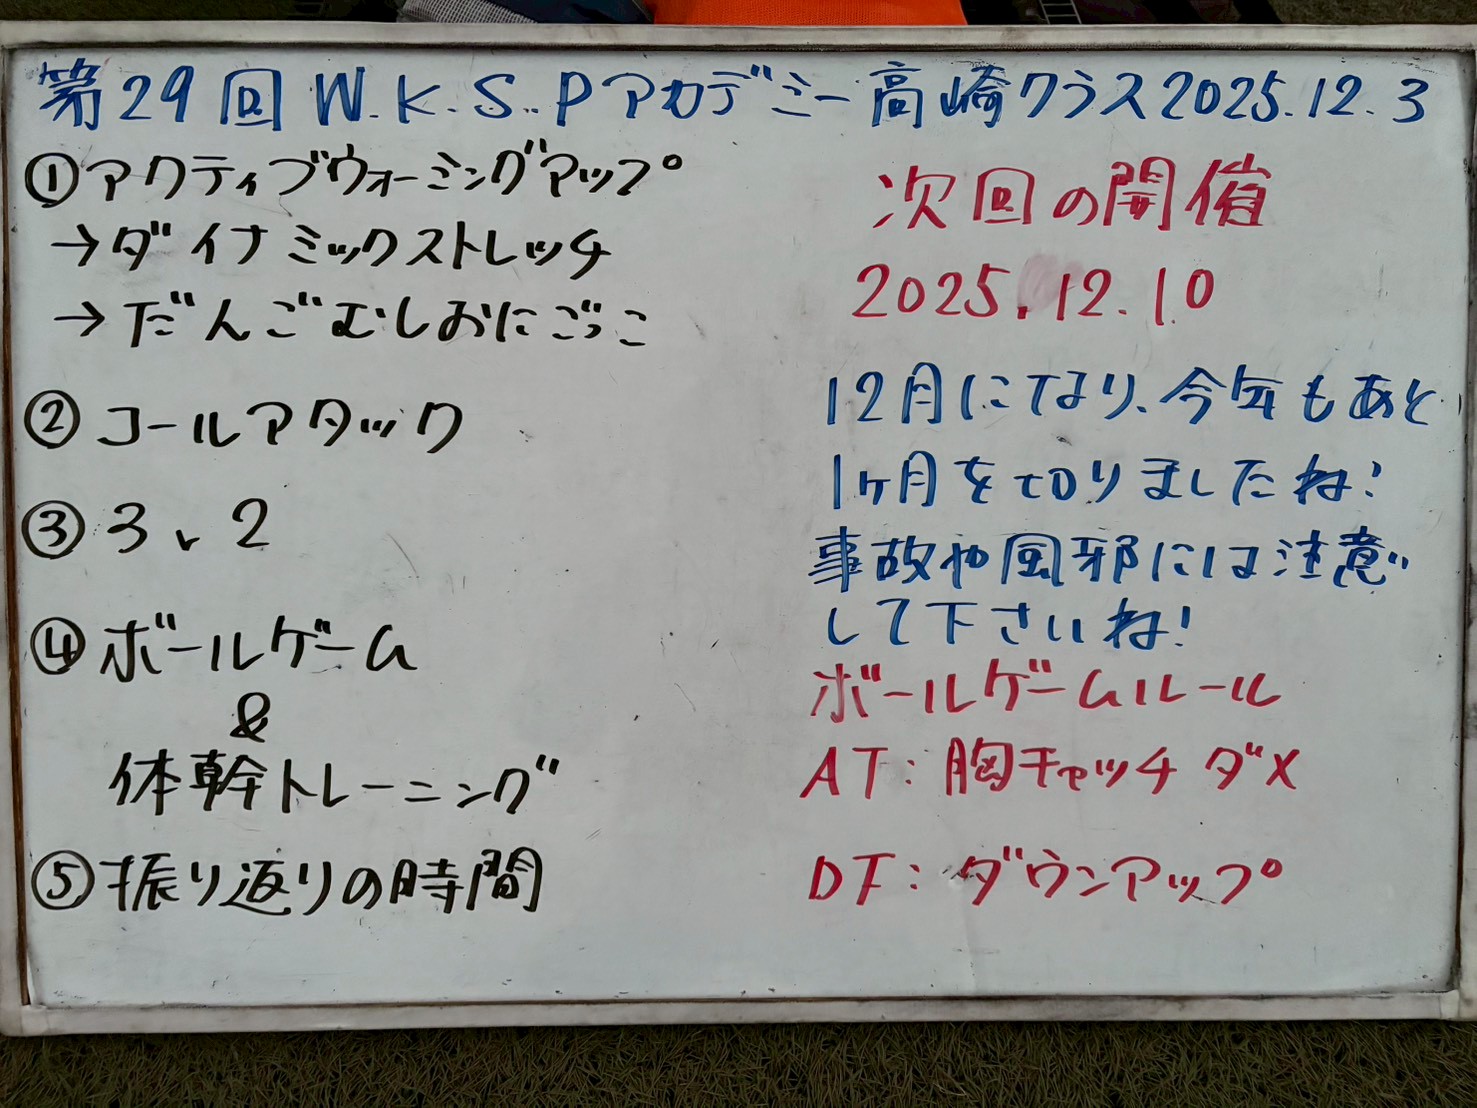 第29回 W.K.S.Pアカデミー高崎クラス2025.12.3
①アクティブウォーミングアップ
→ダイナミックストレッチ
→だんごむしおにごっこ
②コールアタック
③3v2
④ボールゲーム
&
体幹トレーニング
⑤振り返りの時間
次回の開催
2025.12.10
12月になり、今年もあと
1ヶ月を切りましたね!
事故や風邪には注意
して下さいね!
ボールゲームルール
AT:胸キャッチダメ
DF:ダウンアップ